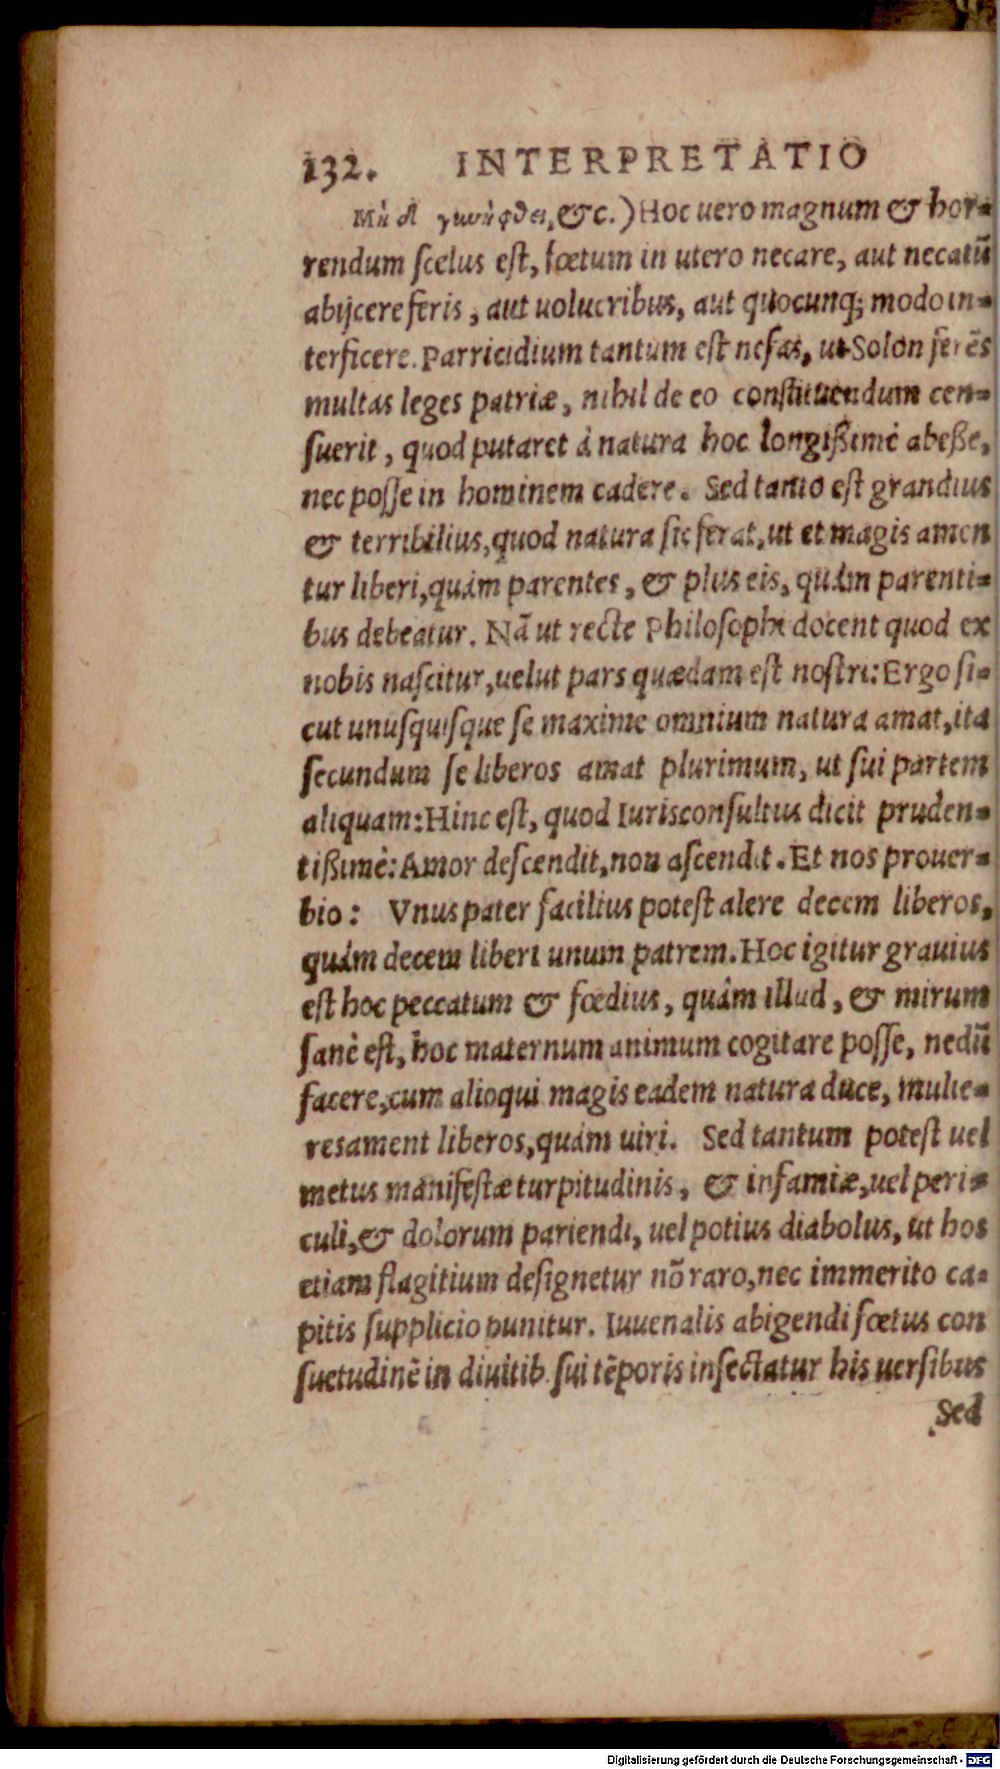 132. INTERPRETATIO
Μὴ δὲ &c.) Hoc uero magnum & hor-
rendum scelus est, fœtum in utero necare, aut necatū
abijcere feris, aut uolucribus, aut quocunq; modo in-
terficere. Parricidium tantum est nefas, ut Solon ferēs
multas leges patriæ, nihil de eo constituendum cen-
suerit, quod putaret à natura hoc longißimè abeße,
nec posse in hominem cadere. Sed tanto est grandius
& terribilius, quod natura sic ferat, ut et magis amen
tur liberi, quàm parentes, & plus eis, quàm parenti-
bus debeatur. Nā ut recte Philosophi docent quod ex
nobis nascitur, uelut pars quædam est nostri: Ergo si-
cut unusquisque se maxime omnium natura amat, ita
secundum se liberos amat plurimum, ut sui partem
aliquam: Hinc est, quod Iurisconsultus dicit pruden-
tißimè: Amor descendit, non ascendit. Et nos prouer-
bio: Vnus pater facilius potest alere decem liberos,
quàm decem liberi unum patrem. Hoc igitur grauius
est hoc peccatum & fœdius, quàm illud, & mirum
sanè est, hoc maternum animum cogitare posse, nedū
facere, cum alioqui magis eadem natura duce, mulie-
res ament liberos, quàm uiri. Sed tantum potest uel
metus manifestæ turpitudinis, & infamiæ, uel peri-
culi, & dolorum pariendi, uel potius diabolus, ut hos
etiam flagitium designetur nō raro, nec immerito ca-
pitis supplicio punitur. Iuuenalis abigendi fœtus con
suetudinē in diuitib. sui tēporis insectatur his uersibus
Sed
Digitalisierung gefördert durch die Deutsche Forschungsgemeinschaft - DFG